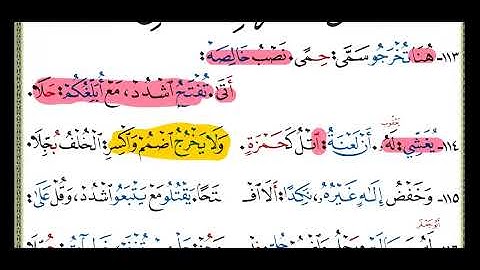 ١١٣- هُنَا تُخْرَجُو سَمَّى: حِمًى. نَصْبُ خَالِصَهْ:
أَتَى. تُفْتَحُ اشْدُدْ، مَعْ أُبَلِّغُكُمْ: حَلَا.
يعقوب
١١٤- يُغَشِّي: لَهُ. أَنْ لَعْنَةُ: اتْلُ كَحَمْزَةٍ. وَلَا يَخْرُجُ اضْمُمْ وَاكْسِرِ: الْخُلْفُ بُجِّلَا.
١١٥- وَخَفْضُ إِلَهٍ غَيْرُهُ، نَكِدًا: أَلَا افْـ ـتَحًا. يَقْتُلُو مَعْ يَتْبَعُوا اشْدُدْ، وَقُلْ عَلَى:
أبو جعفر